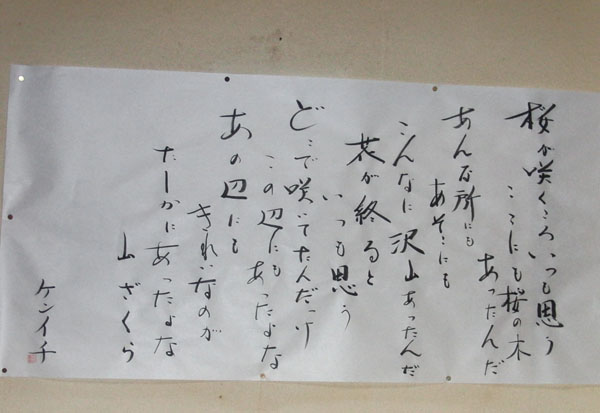 桜が咲くころいつも思う
ここにも桜の木
あったんだ
あんな所にも
あそこにも
こんなに沢山あったんだ
花が終ると
いつも思う
どこで咲いてたんだっけ
この辺にも
あったよな
あの辺にも
きれいなのが
たしかにあったよな
山ざくら
ケンイチ